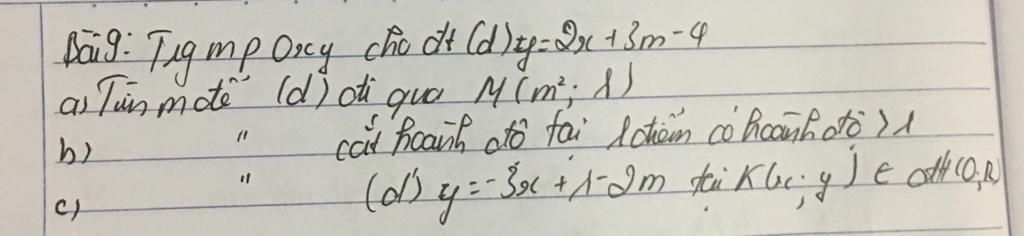 Bài 9: Trg mp Oxy cho đt (d) y = 2x + 3m - 4
a) Tìm m để (d) đi qua M(m²; 1)
b) " cắt hoành độ tại 1 điểm có hoành độ > 1
c) " (d') y = -3x + 1 - 2m tại K(x; y) ∈ đtt (O; R)